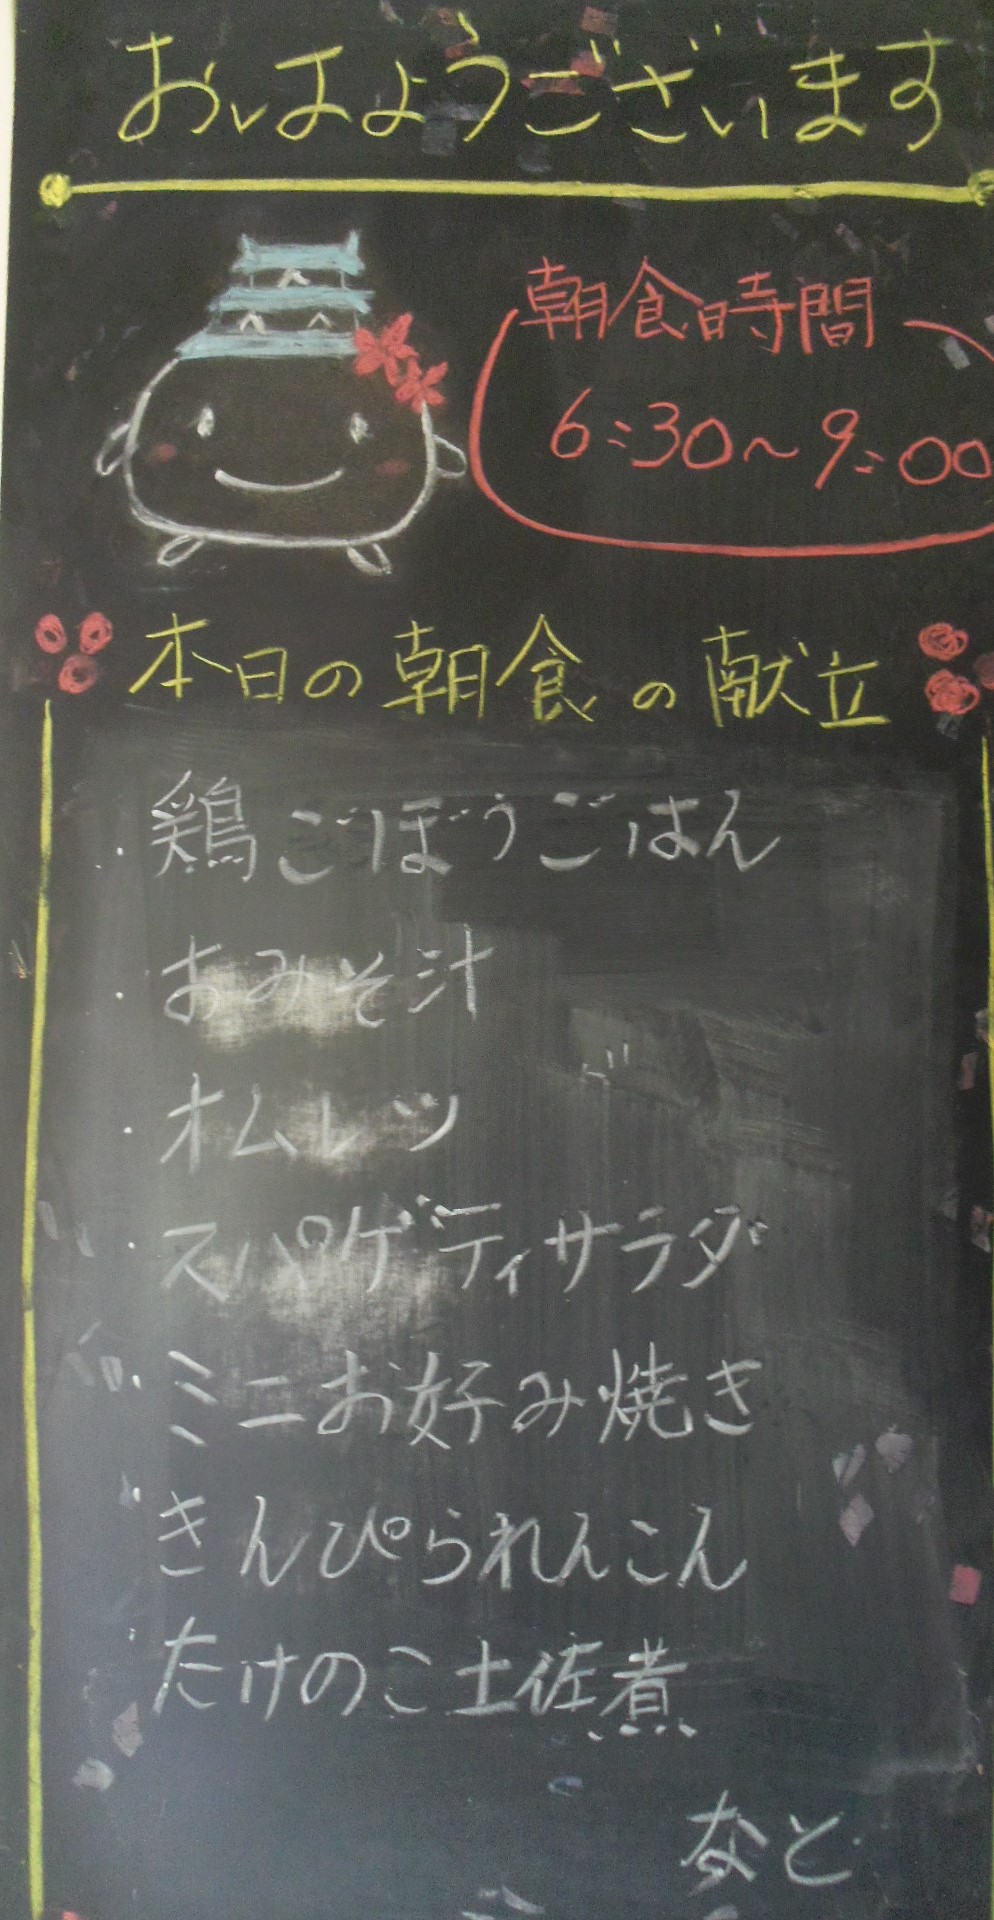 おはようございます
朝食時間
6:30～9:00
本日の朝食の献立
・鶏ごぼうごはん
・おみそ汁
・オムレツ
・スパゲティサラダ
・ミニお好み焼き
・きんぴられんこん
・たけのこ土佐煮
など